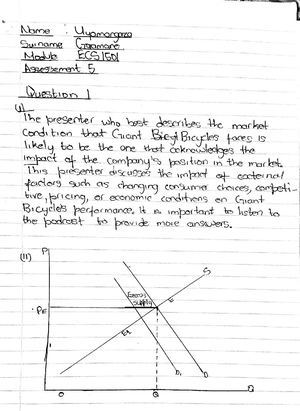 Name : Uyamangaza
Surname Gasmani
Module ECS1501
Assessement 5
Question 1
(i)
The presenter who best describes the market
condition that Giant Bicycl Bicycles faces is
likely to be the one that acknowledges the
impact of the company's position in the market.
This presenter discusses the impact of external
factors such as changing consumer choices, competi-
tive, pricing, or economic conditions on Giant
Bicycle's performance. It is important to listen to
the podcast to provide more answers.
(ii)
P
S
Excess
supply
E
PE
E1
D1
D
O
Q
Q